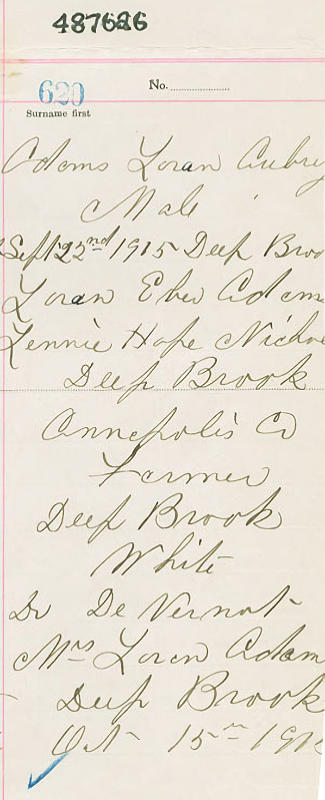 487626
620
No.
Surname first
Adams Loran Aubrey
Male
Sept 22nd 1915 Deep Broo
Loran Eber Adams
Lennie Hope Nichol
Deep Brook
Annapolis Co
Farmer
Deep Brook
White
Dr De Vernet
Mrs Loran Adam
Deep Brook
Oct 15th 191